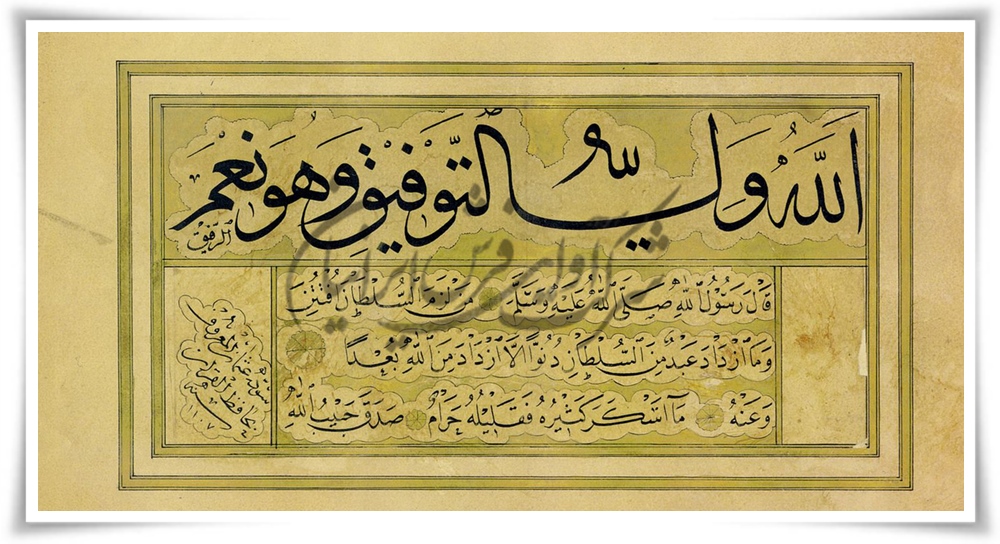 اَللهُ وَلِيُّ التَّوْفِيقِ وَهُوَ نِعْمَ
الرَّفِيقُ
قَالَ رَسُولُ اللهِ صَلَّى اللهُ عَلَيْهِ وَسَلَّمَ مَنْ لَزِمَ السُّلْطَانَ افْتُتِنَ
وَمَا ازْدَادَ عَبْدٌ مِنَ السُّلْطَانِ دُنُوًّا اِلَّا ازْدَادَ مِنَ اللهِ بُعْدًا
وَعَنْهُ مَا اَسْكَرَ كَثِيرُهُ فَقَلِيلُهُ حَرَامٌ صَدَقَ حَبِيبُ اللهِ
عثمان المعروف
بحافظ القرآن
سنه ١١٠٧